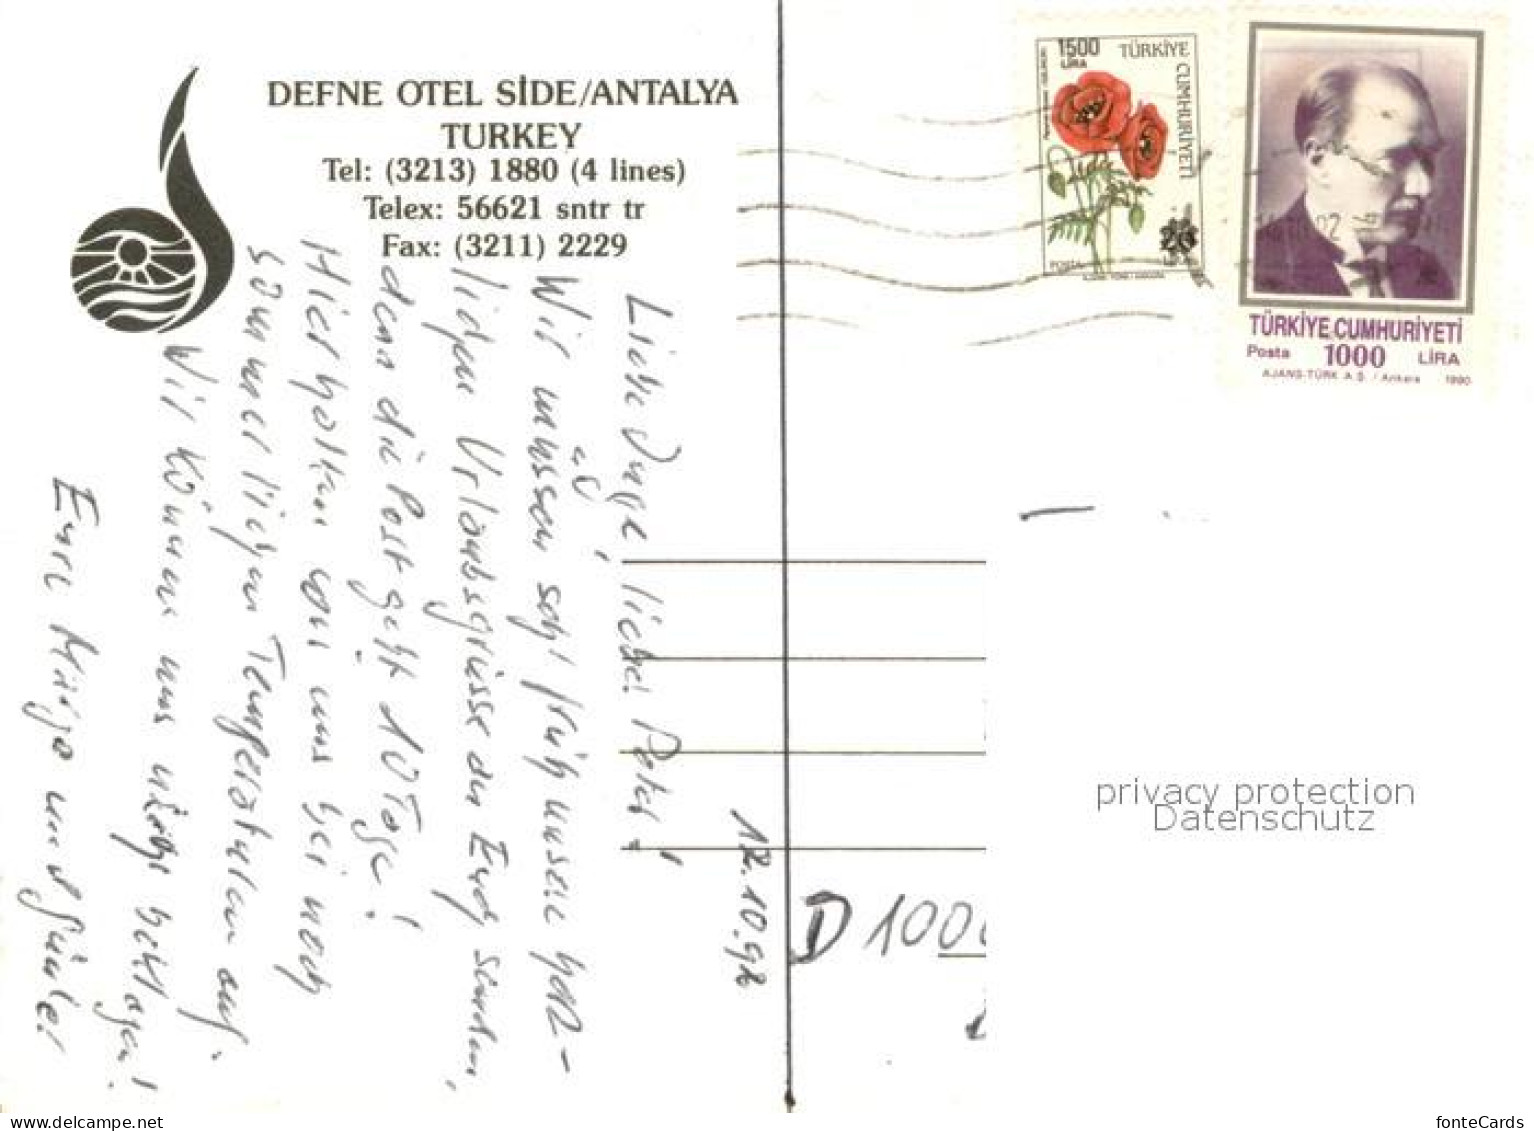 DEFNE OTEL SİDE/ANTALYA
TURKEY
Tel: (3213) 1880 (4 lines)
Telex: 56621 sntr tr
Fax: (3211) 2229
1500
LİRA
TÜRKİYE CUMHURİYETİ
POSTA
20
TÜRKİYE CUMHURİYETİ
Posta 1000 LİRA
AJANS-TÜRK A.Ş. / Ankara 1990
12.10.92
Liebe Inge, lieber Peter!
Wir müssen sehr früh unsere herz-
lichen Urlaubsgrüsse an Euch senden,
denn die Post geht 10 Tage!
Hier halten wir uns bei noch
sommerlichen Temperaturen auf.
Wir können uns nicht beklagen!
Eure und Günter
D 100
privacy protection
Datenschutz
www.delcampe.net
fonteCards